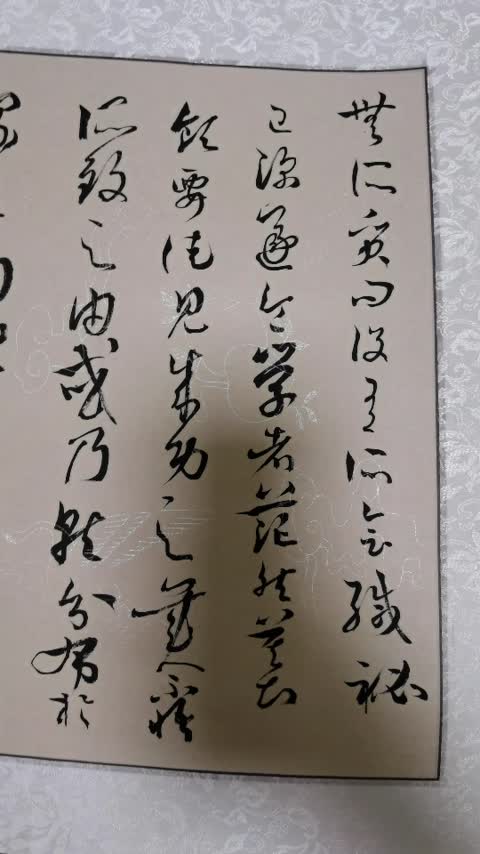 無所質問設有所會緘秘
已深遂令學者茫然莫知
領要徒見成功之美不悟
所致之由或乃就分布於